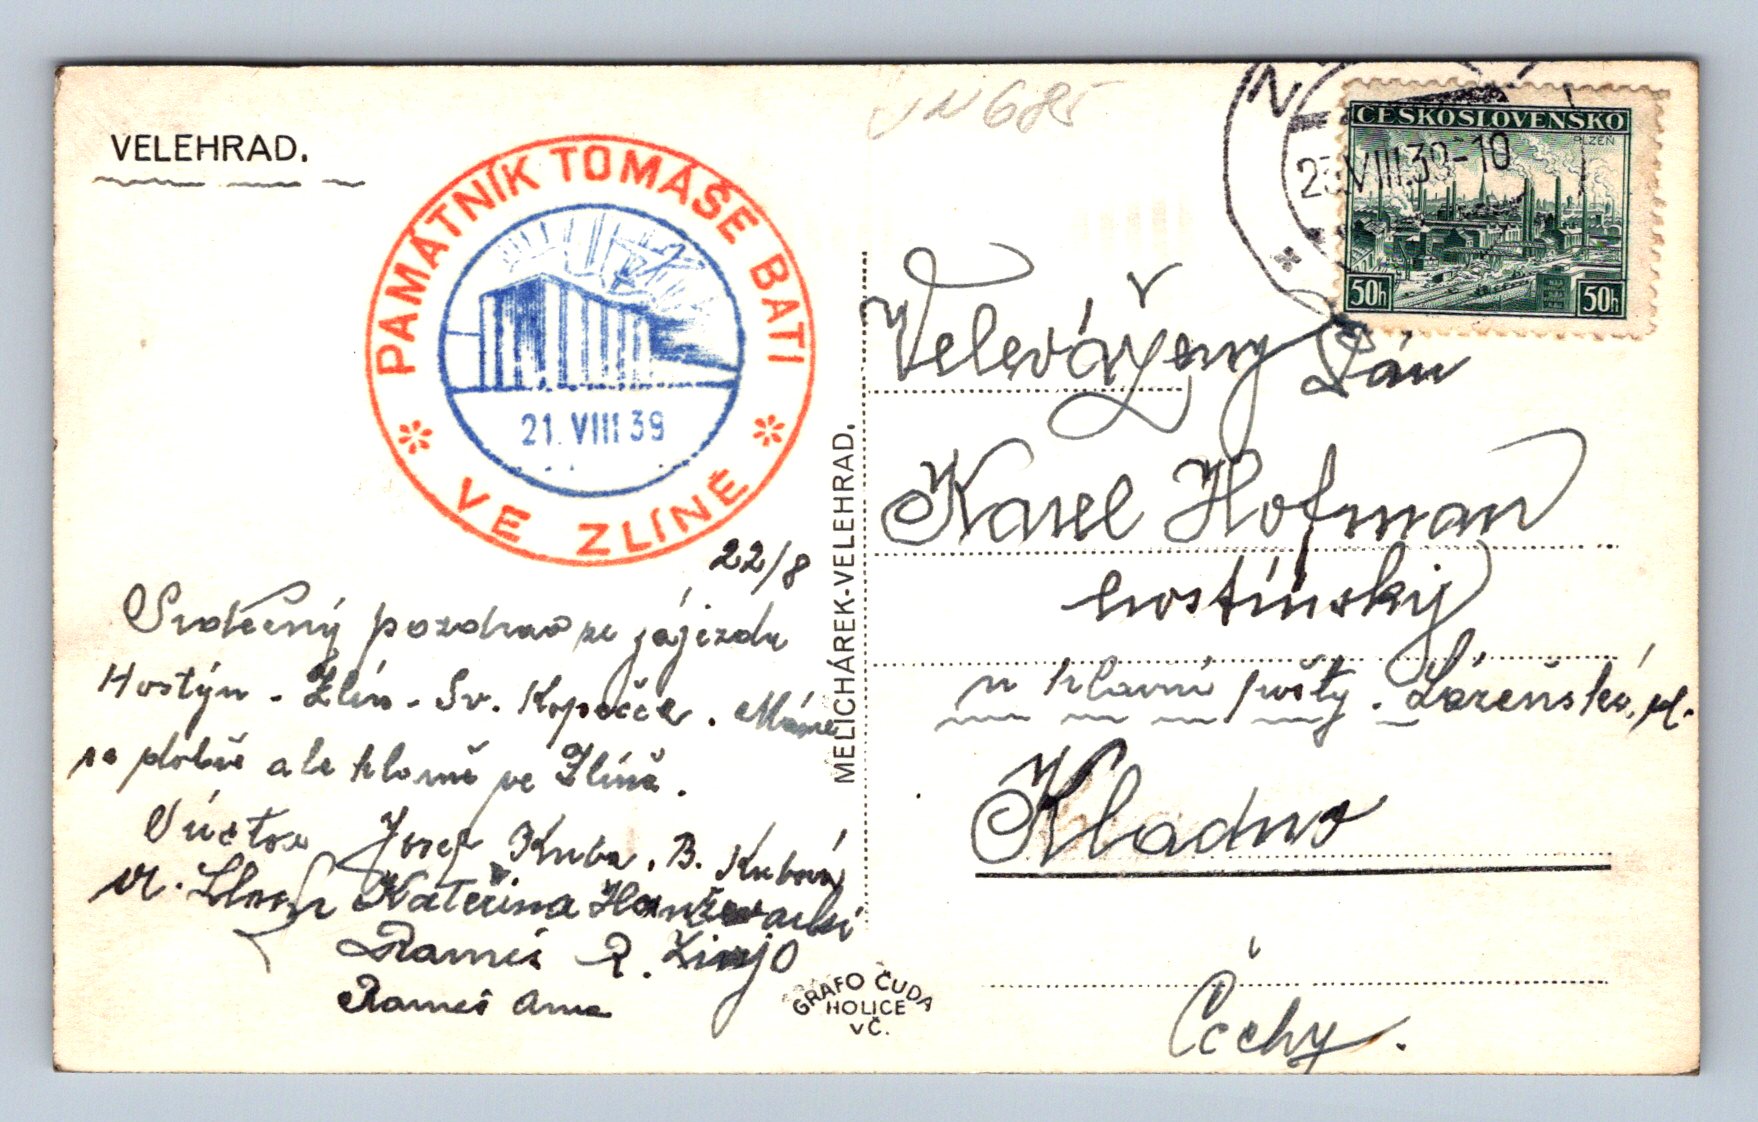 VELEHRAD.
PAMÁTNÍK TOMÁŠE BATI
VE ZLÍNĚ
21. VIII 39
VN685
ČESKOSLOVENSKO
PLZEŇ
50h 50h
N
23.VIII.39-10
22/8
Srdečný pozdrav ze zájezdu
Hostýn - Zlín - Sv. Kopeček. Máme
se dobře ale hlavně ve Zlíně.
V úctě Josef Kuba, B. Kubová
Kateřina
Rameš R.
Rameš Anna
MELICHÁREK-VELEHRAD.
GRAFO ČUDA
HOLICE
VČ.
Velevážený Pán
Karel Hofman
hostinský
u hlavní pošty. Lázeňská,
Kladno
Čechy.